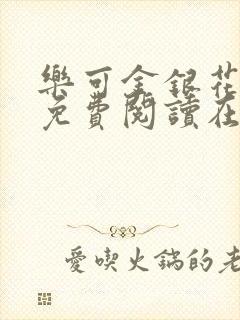 樂可金銀花
免費閱讀在
愛喫火鍋的老